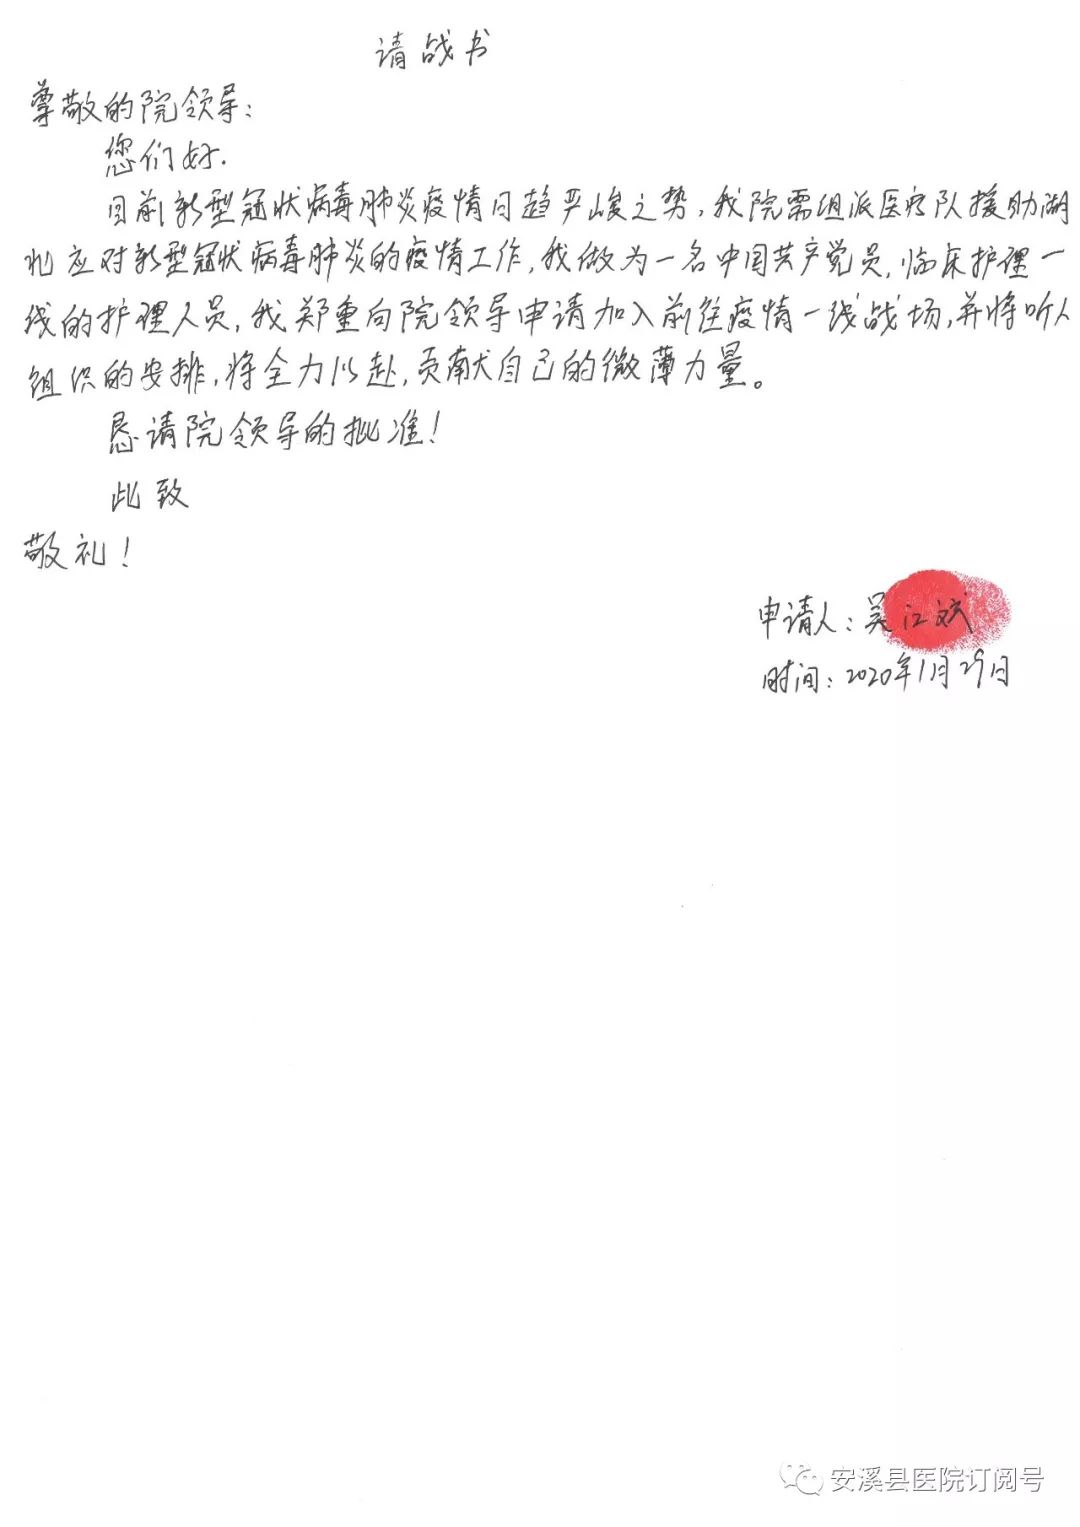 请战书
尊敬的院领导：
您们好.
目前新型冠状病毒肺炎疫情日趋严峻之势，我院需组派医疗队援助湖
北应对新型冠状病毒肺炎的疫情工作，我做为一名中国共产党员，临床护理一
线的护理人员，我郑重向院领导申请加入前往疫情一线战场，并将听从
组织的安排，将全力以赴，贡献自己的微薄力量。
恳请院领导的批准！
此致
敬礼！
申请人：吴江斌
时间：2020年1月29日
安溪县医院订阅号